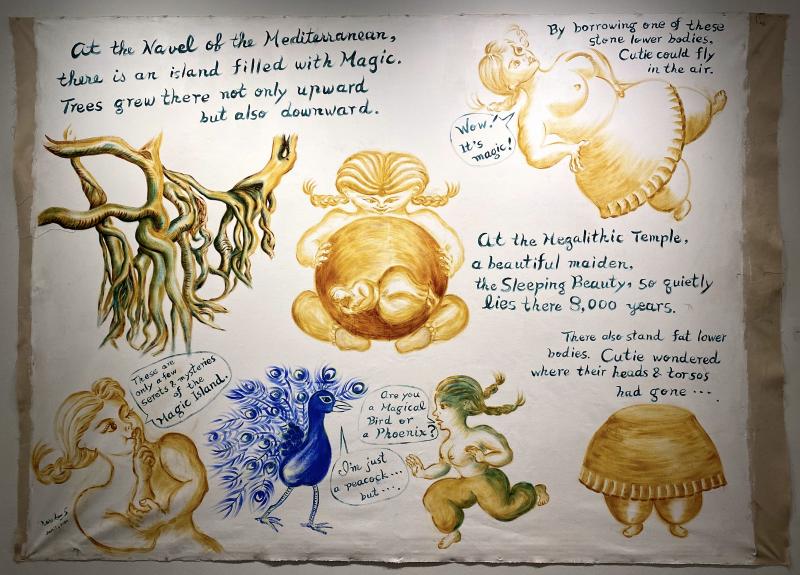 At the Navel of the Mediterranean,
there is an island filled with Magic.
Trees grew there not only upward
but also downward.
By borrowing one of these
stone lower bodies.
Cutie could fly
in the air.
Wow!
It's
magic!
At the Megalithic Temple,
a beautiful maiden,
the Sleeping Beauty, so quietly
lies there 8,000 years.
There also stand fat lower
bodies. Cutie wondered
where their heads & torsos
had gone ....
These are
only a few
secrets & mysteries
of the
Magic Island.
Are you
a Magical
Bird or
a Phoenix?
I'm just
a peacock...
but....